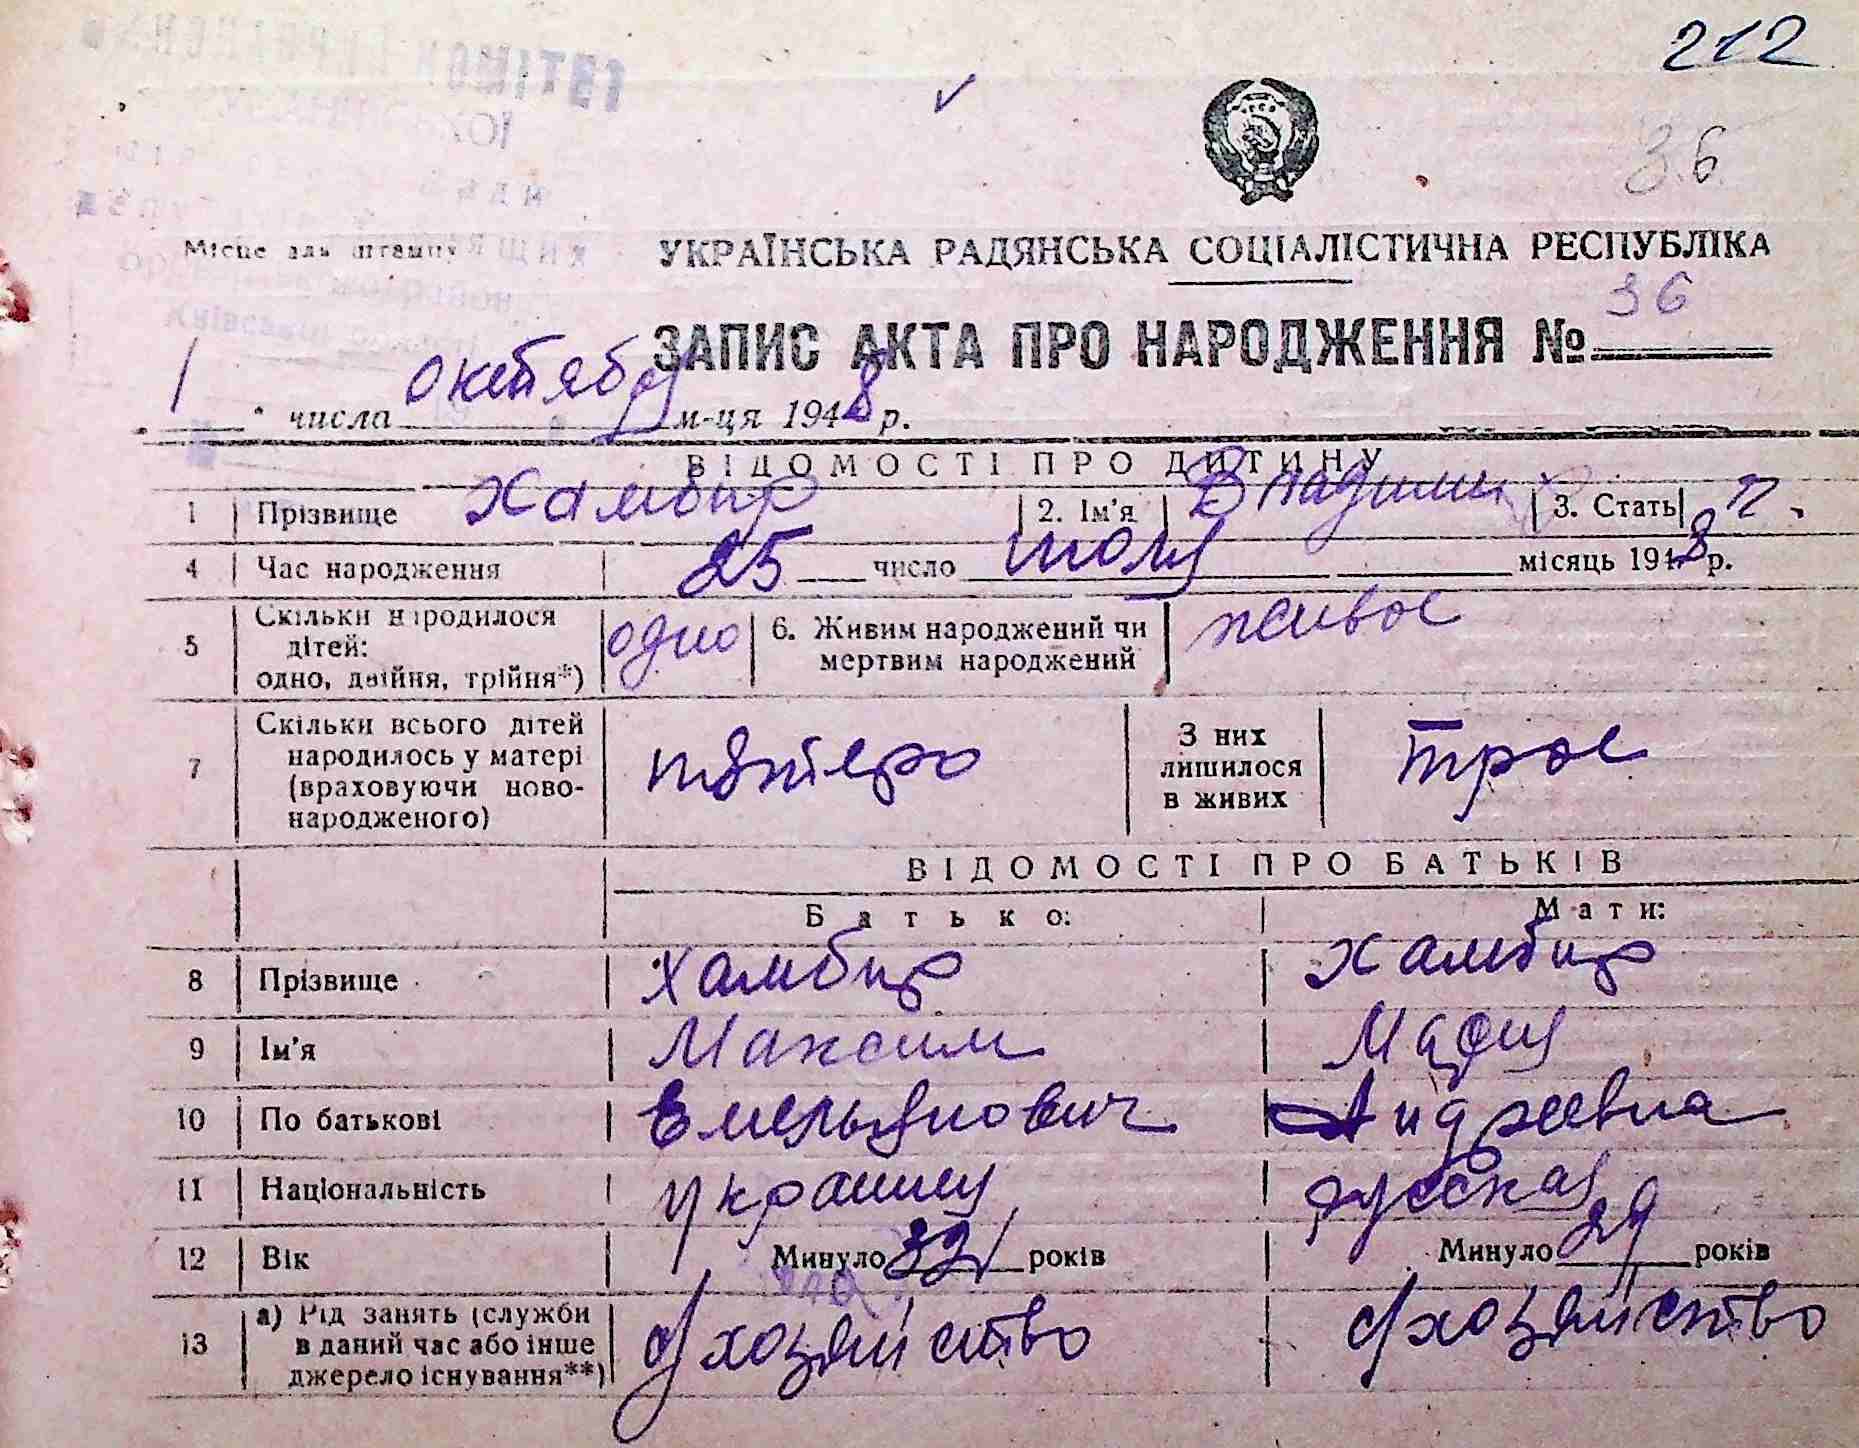 212
36
Місце для штампу
УКРАЇНСЬКА РАДЯНСЬКА СОЦІАЛІСТИЧНА РЕСПУБЛІКА
ЗАПИС АКТА ПРО НАРОДЖЕННЯ № 36
1 числа октября м-ця 1948 р.
ВІДОМОСТІ ПРО ДИТИНУ
1 Прізвище Хамбир 2. Ім'я Владимир 3. Стать
4 Час народження 25 число июля місяць 1948 р.
5 Скільки народилося дітей: одно, двійня, трійня*) одно 6. Живим народжений чи мертвим народжений живое
7 Скільки всього дітей народилось у матері (враховуючи ново-народженого) пятеро З них лишилося в живих трое
ВІДОМОСТІ ПРО БАТЬКІВ
Батько: Мати:
8 Прізвище Хамбир Хамбир
9 Ім'я Максим Мария
10 По батькові Емельянович Андреевна
11 Національність украинец русская
12 Вік Минуло 32 років Минуло 29 років
13 а) Рід занять (служби в даний час або інше джерело існування**) с/хозяйство с/хозяйство